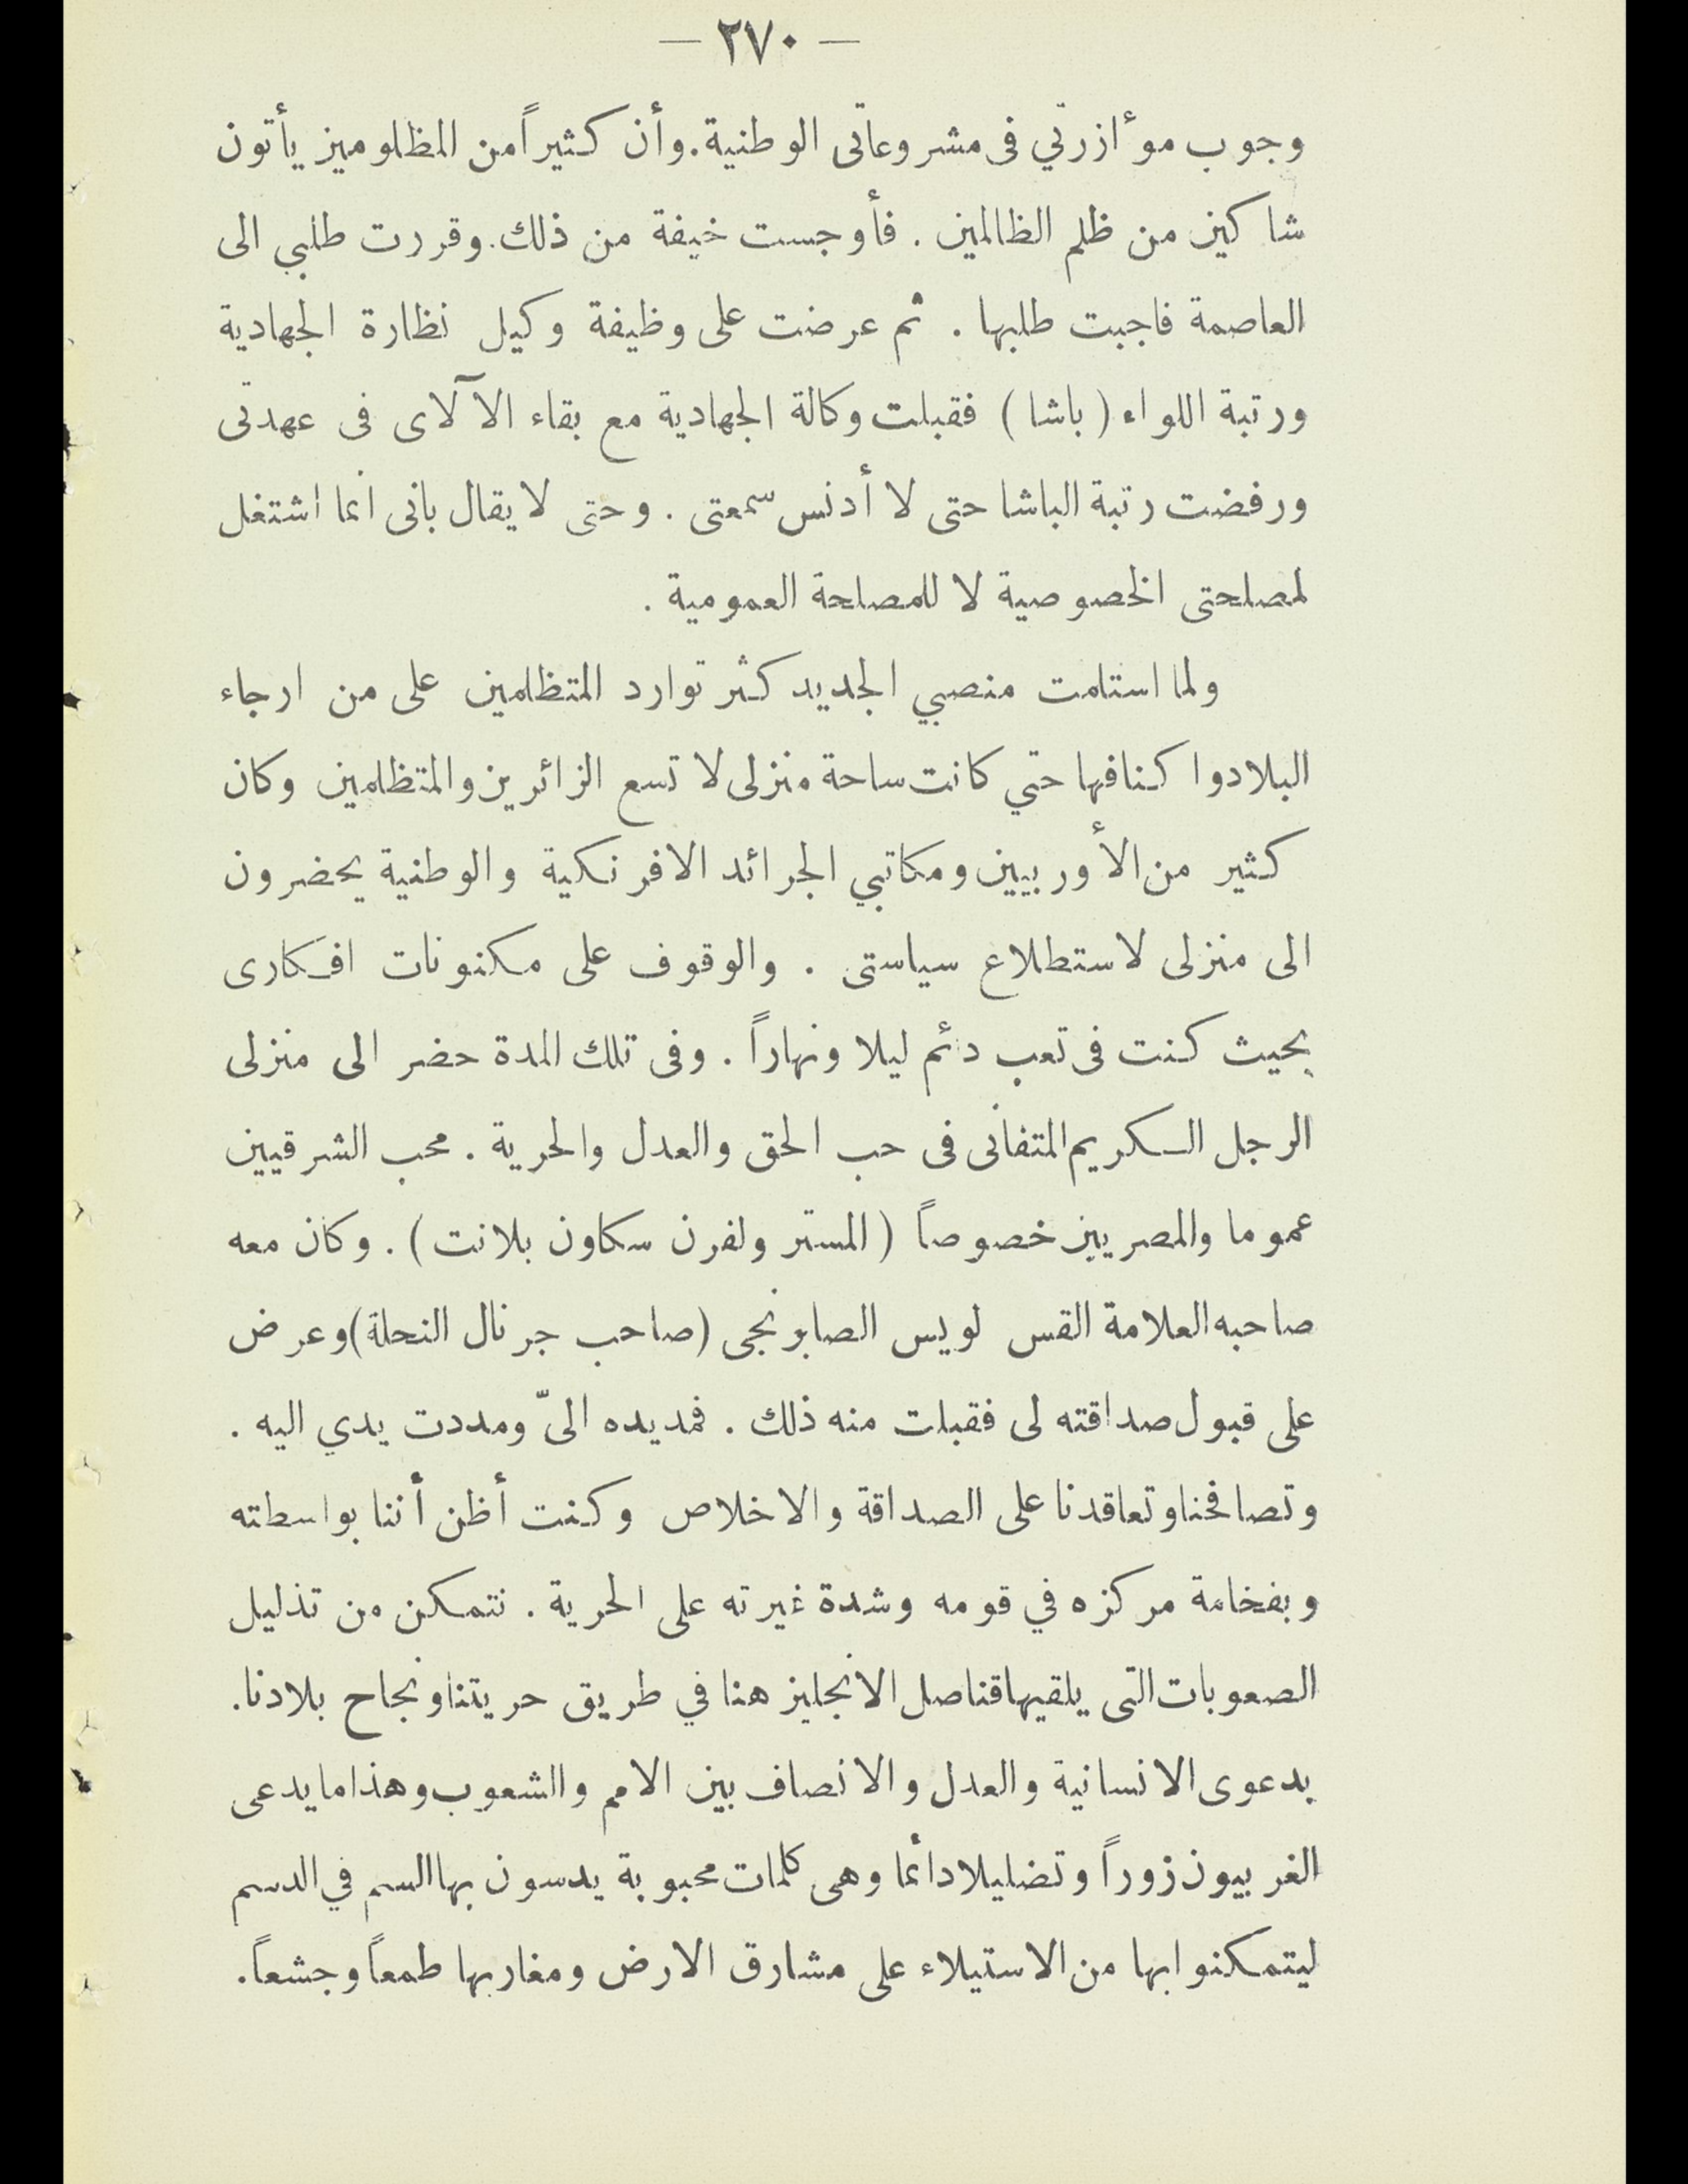 — ٢٧٠ —
وجوب موأزرتي فى مشروعاتى الوطنية. وأن كثيراً من المظلومين يأتون
شاكين من ظلم الظالمين . فأوجست خيفة من ذلك. وقررت طلبي الى
العاصمة فاجبت طلبها . ثم عرضت على وظيفة وكيل نظارة الجهادية
ورتبة اللواء (باشا) فقبلت وكالة الجهادية مع بقاء الآلاى فى عهدتى
ورفضت رتبة الباشا حتى لا أدنس سمعتى . وحتى لا يقال بانى انما اشتغل
لمصلحتى الخصوصية لا للمصلحة العمومية .
ولما استلمت منصبي الجديد كثر توارد المتظلمين على من ارجاء
البلاد واكنافها حتي كانت ساحة منزلى لا تسع الزائرين والمتظلمين وكان
كثير من الأوربيين ومكاتبي الجرائد الافرنكية والوطنية يحضرون
الى منزلى لاستطلاع سياستى . والوقوف على مكنونات افكارى
بحيث كنت فى تعب دائم ليلا ونهاراً . وفى تلك المدة حضر الى منزلى
الرجل الكريم المتفانى فى حب الحق والعدل والحرية . محب الشرقيين
عموما والمصريين خصوصاً (المستر ولفرن سكاون بلانت) . وكان معه
صاحبه العلامة القس لويس الصابونجى (صاحب جرنال النحلة) وعرض
على قبول صداقته لى فقبلت منه ذلك . فمد يده الىّ ومددت يدي اليه .
وتصافحنا وتعاقدنا على الصداقة والاخلاص وكنت أظن أننا بواسطته
وبفخامة مركزه في قومه وشدة غيرته على الحرية . نتمكن من تذليل
الصعوبات التى يلقيها قناصل الانجليز هنا في طريق حريتنا ونجاح بلادنا.
بدعوى الانسانية والعدل والانصاف بين الامم والشعوب وهذا ما يدعى
الغربيون زوراً وتضليلا دائما وهى كلمات محبوبة يدسون بها السم في الدسم
ليتمكنوا بها من الاستيلاء على مشارق الارض ومغاربها طمعاً وجشعاً.